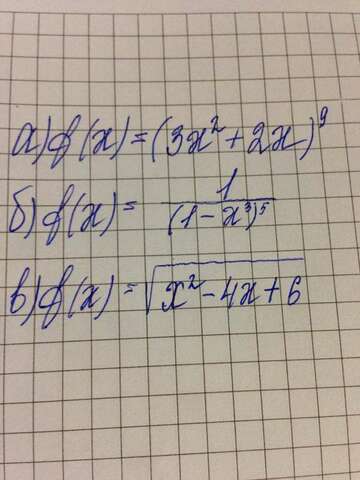 а) f(x) = (3x² + 2x)⁹
б) f(x) = 1/(1 - x³)⁵
в) f(x) = √(x² - 4x + 6)